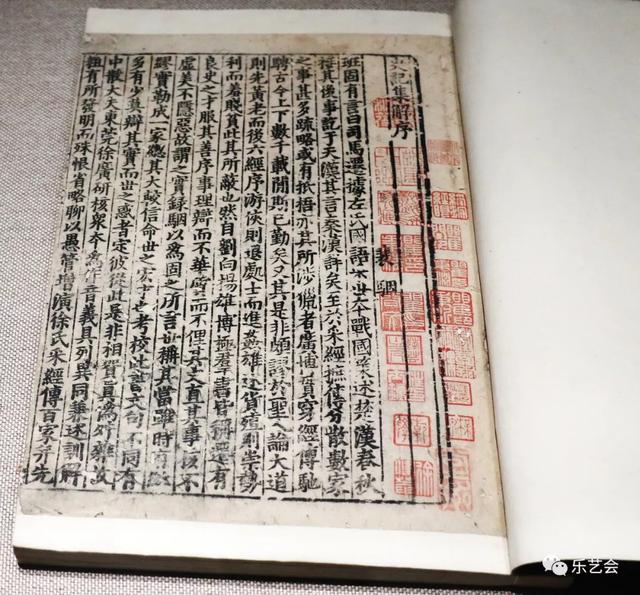 史記集解序
裴駰
班固有言曰司馬遷據左氏國語采世本戰國策述楚漢春秋
接其後事訖于天漢其言秦漢詳矣至於采經摭傳分散數家
之事甚多疏略或有抵捂亦其所涉獵者廣博貫穿經傳馳
騁古今上下數千載閒斯已勤矣又其是非頗謬於聖人論大道
則先黃老而後六經序游俠則退處士而進姦雄述貨殖則崇勢
利而羞賤貧此其所蔽也然自劉向揚雄博極羣書皆稱遷有
良史之才服其善序事理辯而不華質而不俚其文直其事核不
虛美不隱惡故謂之實錄駰以爲固之所言世稱其當雖時有紕
繆實勒成一家總其大較信命世之宏才也考校此書文句不同有
多有少莫辯其實而世之惑者定彼從此是非相貿真僞舛雜故
中散大夫東莞徐廣研核衆本爲作音義具列異同兼述訓解
麤有所發明而殊恨省略聊以愚管增演徐氏采經傳百家并先
乐艺会